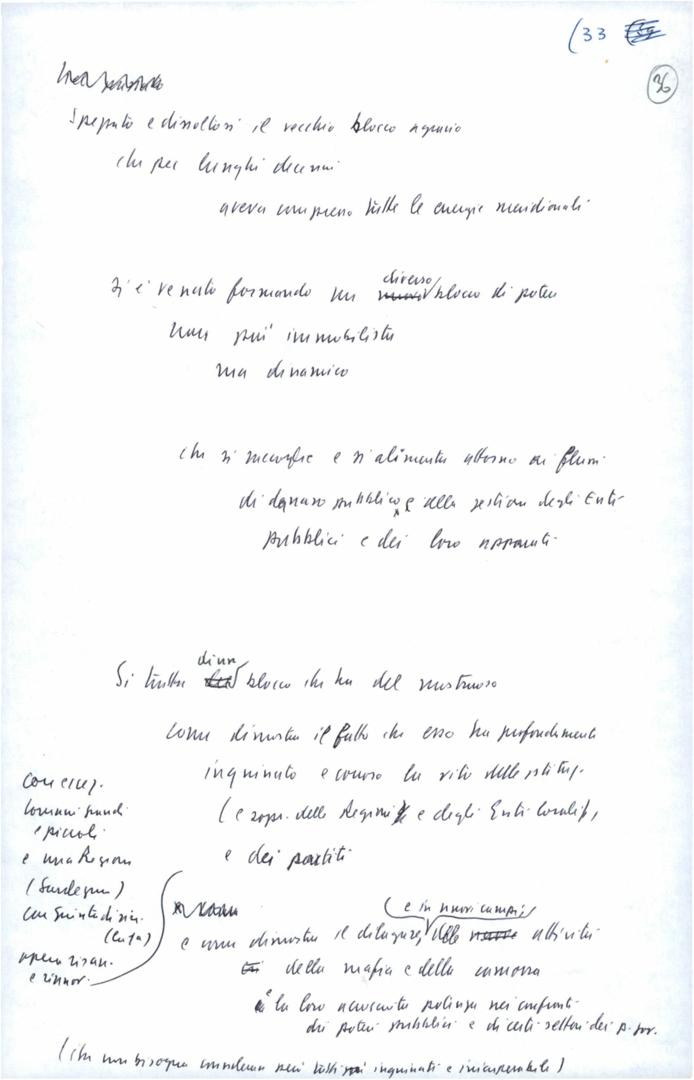 (33
36
Spezzato e dissoltosi il vecchio blocco agrario
che per lunghi decenni
aveva compresso tutte le energie meridionali
si è venuto formando un diverso blocco di potere
non più immobilista
ma dinamico
che si raccoglie e si alimenta attorno ai flussi
di denaro pubblico, e alla gestione degli Enti
pubblici e dei loro apparati
Si tratta di un blocco che ha del mostruoso
come dimostra il fatto che esso ha profondamente
inquinato e corroso la vita delle istituz.
(e sopr. delle Regioni e degli Enti locali),
e dei partiti
con eccez.
Comuni grandi
e piccoli
e una Regione
(Sardegna)
con giunte di sin.
opera risan.
e rinnov.
e come dimostra il dilagare, (e in nuovi campi) delle attività
della mafia e della camorra
e la loro accresciuta potenza nei confronti
dei poteri pubblici e di certi settori dei p. gov.
(che non bisogna considerare però tutti inquinati e irrecuperabili)